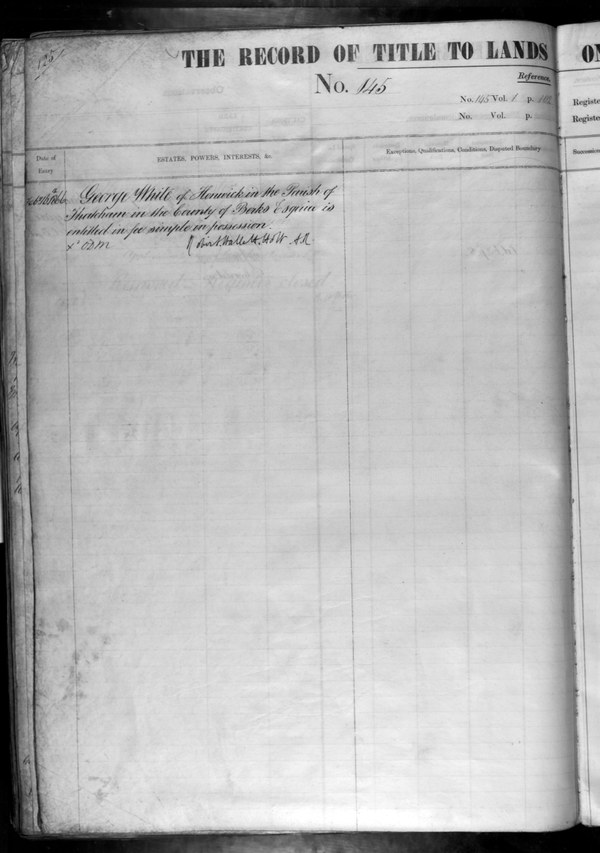 THE RECORD OF TITLE TO LANDS
ON
No. 145
Reference.
No. 145 Vol. 1 p.
No. Vol. p.
Registe
Registe
Date of
Entry
ESTATES, POWERS, INTERESTS, &c.
Exceptions, Qualifications, Conditions, Disputed Boundary
Succession
George White of Henwick in the Parish of
Thatcham in the County of Berks Esquire is
entitled in fee simple in possession.